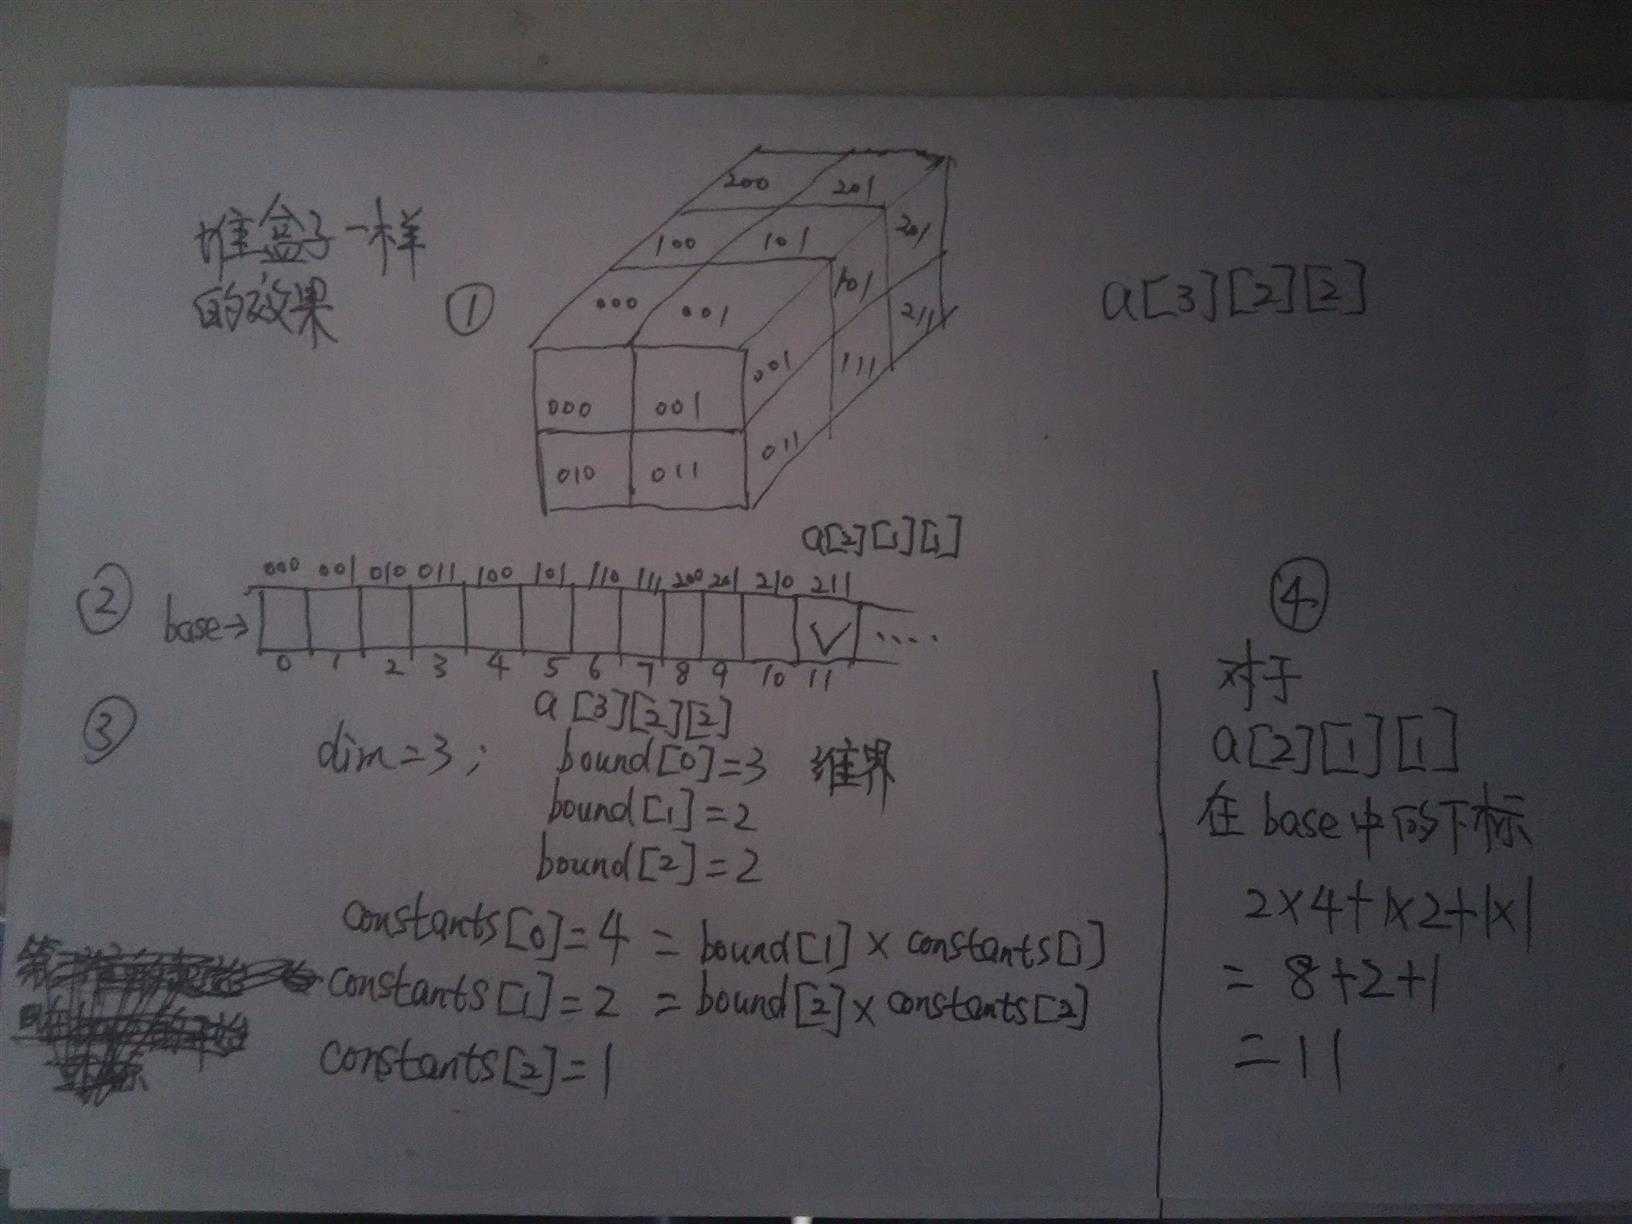 堆盒子一样
的效果
①
200 201
100 101 201
000 001 101 211
000 001 001 111
010 011 011
a[3][2][2]
a[2][1][1]
②
000 001 010 011 100 101 110 111 200 201 210 211
base→ ....
0 1 2 3 4 5 6 7 8 9 10 11
③
a[3][2][2]
dim=3; bound[0]=3 维界
bound[1]=2
bound[2]=2
constants[0]=4 = bound[1]×constants[1]
constants[1]=2 = bound[2]×constants[2]
constants[2]=1
④
对于
a[2][1][1]
在base中的下标
2×4+1×2+1×1
=8+2+1
=11